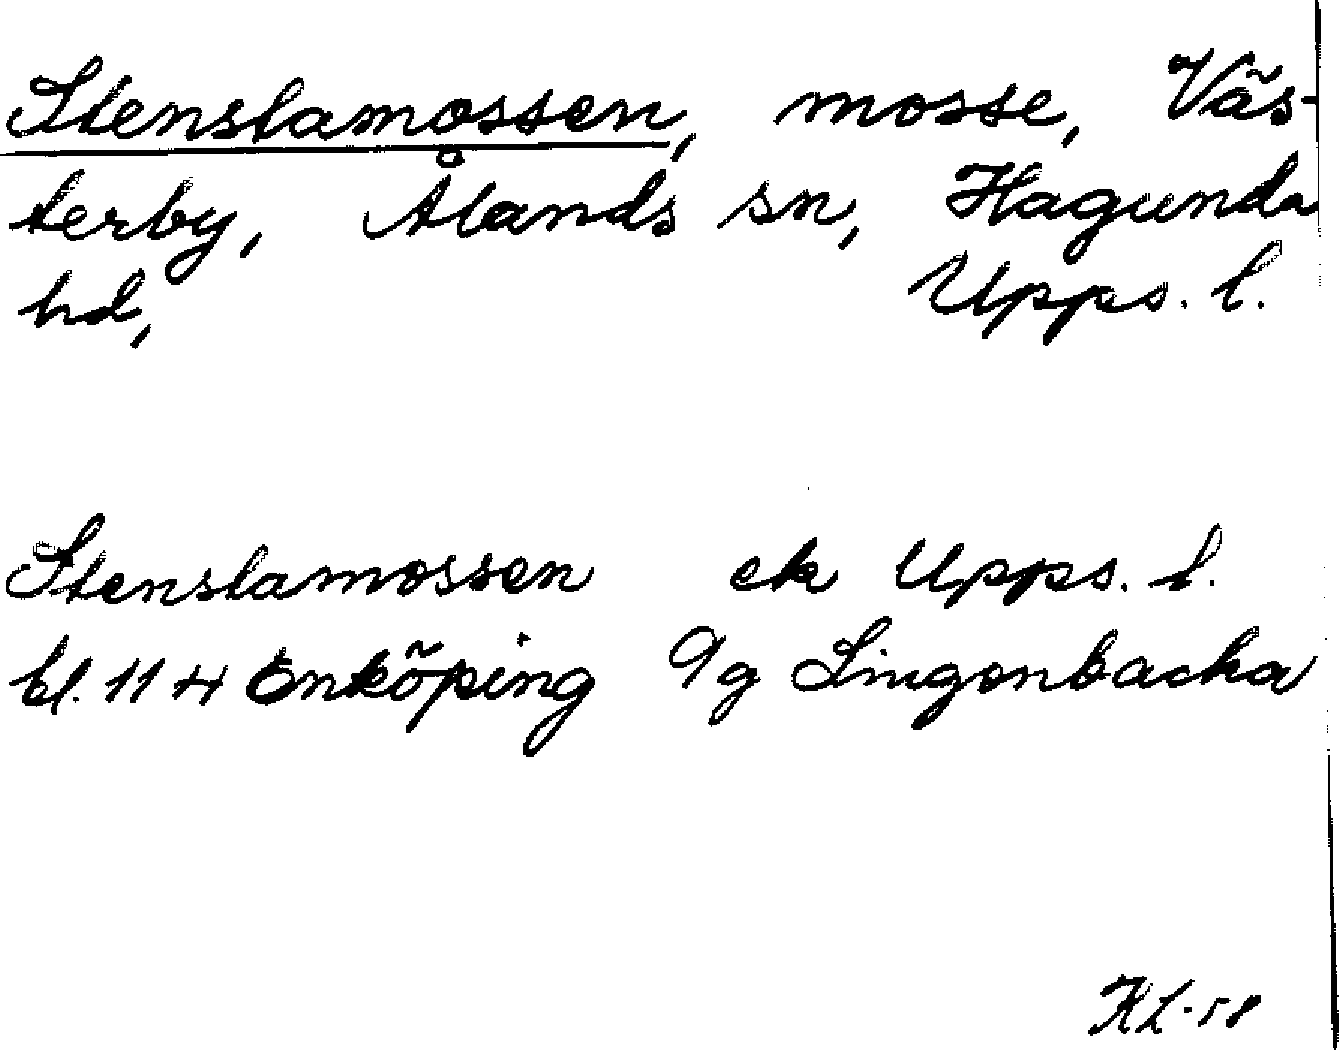 Stenslamossen, mosse, Väs-
terby, Ålands sn, Hagunda
hd, Upps. l.
Stenslamossen ek Upps. l.
bl. 11 H Enköping 9g Lingonbacka
KL-58